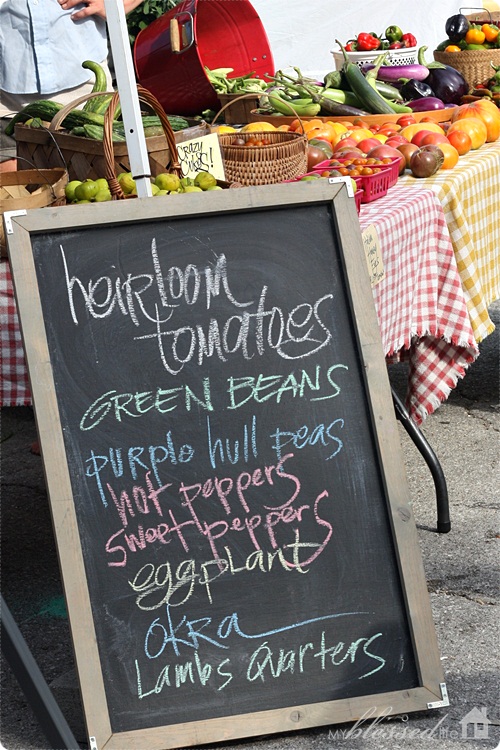 CRAZY
CUKES!
heirloom
tomatoes
GREEN BEANS
purple hull peas
hot peppers
sweet peppers
eggplant
OKRA
LAMBS QUARTERS
MY blessed life